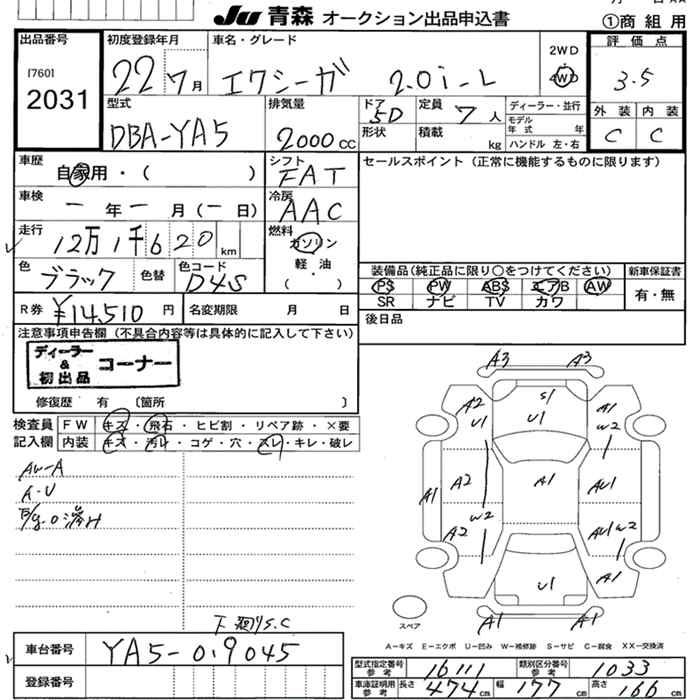 Ju 青森 オークション出品申込書
①商 組 用
出品番号
[760]
2031
初度登録年月
22 7月
車名・グレード
エクシーガ 2.0i-L
2WD
4WD
評 価 点
3.5
外 装 内 装
C C
型式
DBA-YA5
排気量
2000 CC
ドア 5D
形状
定員 7 人
積載 kg
ディーラー・並行
モデル
年 式 年
ハンドル 左・右
車歴
自家用・( )
シフト
FAT
セールスポイント(正常に機能するものに限ります)
車検
ー年ー月(ー日)
冷房
AAC
走行
12万1千620 km
燃料
ガソリン
軽・油
( )
色
ブラック
色替
色コード
D4S
装備品(純正品に限り○をつけてください)
PS PW ABS エアB AW
SR ナビ TV カワ
新車保証書
有・無
R券 ¥14,510 円
名変期限 月 日
後日品
注意事項申告欄(不具合内容等は具体的に記入して下さい)
ディーラー
&
初出品
コーナー
修復歴 有 〔箇所 〕
検査員
記入欄
FW キズ・飛石・ヒビ割・リペア跡・×要
内装 キズ・汚レ・コゲ・穴・スレ・キレ・破レ
AW-A
A・U
A3 A3
A2 U1 S1 U1 A1 W2
A1 A2 A1 AU1 A1
W2 A2 AU1 W2
U1 A1
A1 A1
スペア
A－キズ E－エクボ U－凹み W－補修跡 S－サビ C－腐食 XX－交換済
S.C
車台番号
YA5-019045
登録番号
型式指定番号
参考
16111
類別区分番号
参考
1033
車庫証明用
参考
長さ 474 cm 幅 177 cm 高さ 166 cm